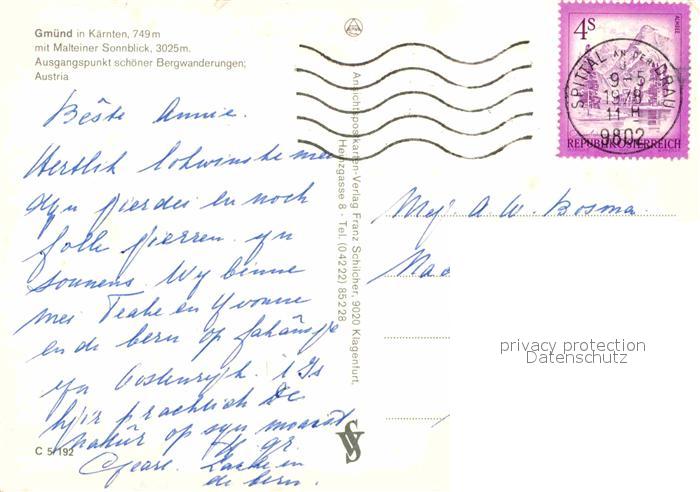 Gmünd in Kärnten, 749 m
mit Malteiner Sonnblick, 3025m.
Ausgangspunkt schöner Bergwanderungen;
Austria
Bêste Annie.
Hertlik lokwinske mei
dyn jierdei en noch
folle jierren yn
sounens. Wy binne
mei Teake en Yvonne
en de bern op fakânsje
yn Oostenryk. 't Is
hjir prachtich De
natûr op syn moaist
gr.
de bern.
C 5/192
Ansichtspostkarten-Verlag Franz Schilcher, 9020 Klagenfurt,
Heinzgasse 8 · Tel. (04222) 85228
4S
ALMSEE
REPUBLIK ÖSTERREICH
SPITTAL AN DER DRAU
9-5
1978
11 H
9802
Mej. A W. Bosma
privacy protection
Datenschutz